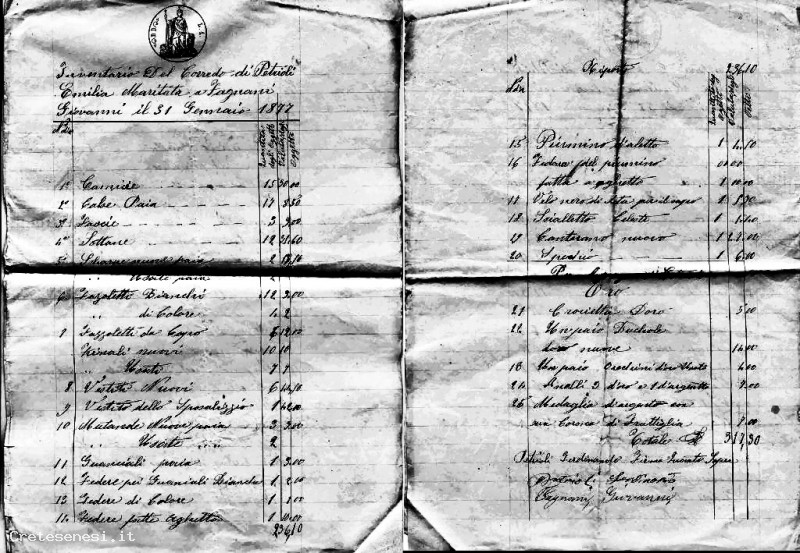 Inventario Del Corredo di Petrioli
Emilia Maritata a Fagnani
Giovanni il 31 Gennaio 1877
Quantità degli Oggetti
Oggetto
1° Camicie 15 30.00
2° Calze Paia 17
3° 3 3.00
4° Sottane 12 31.60
5 paia 2
Usate paia 2
6 Fazzoletti Bianchi 12 3.00
" di Colore 4 2
7 Fazzoletti da Capo 8 12.00
Grenali nuovi 10 10
" Usati 7 7
8 Vestiti Nuovi 6
9 Vestito dello Sposalizzio 1 42.00
10 Mutande Nuove paia 3 3.00
" Usate 2
11 Guanciali paia 1 3.00
12 Federe per Guanciali Bianche 1 2.00
13 Federe di Colore 1 1.00
14 Federe fatte Aghetto 1 10.00
236.10
Riporto 236.10
15 Piumino d'aletto 1
16 Federa del piumino
fatta a aghetto 1 10.00
17 Velo nero di seta per il capo 1
18 Scialletto Celeste 1
19 Canterano nuovo 1
20 Specchio 1 6.00
Oro
21 Crocietta Doro 5.00
22 Un paio Buchole
nuove 14.00
23 Un paio Orecchini d'oro Usati 4.00
24 Analli 3 d'oro e 1 d'argento
25 Medaglia d'argento con
una Corona di
Totale 317.30
Petrioli Ferdinando
Fagnani Giovanni
Cretesenesi.it